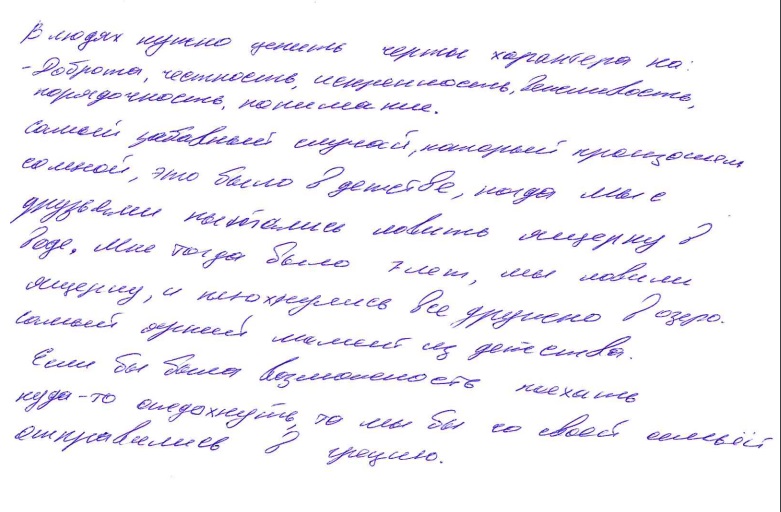 В людях нужно ценить черты характера на:
- Доброта, честность, искренность, Вежливость,
порядочность, понимание.
Самый забавный случай, который произошел
со мной, это было в детстве, когда мы с
друзьями пытались ловить ящерку в
воде. Мне тогда было 7 лет, мы ловили
ящерку, и плюхнулись все дружно в озеро.
самый яркий момент из детства.
Если бы была возможность поехать
куда-то отдохнуть, то мы бы со своей семьёй
отправились в грецию.